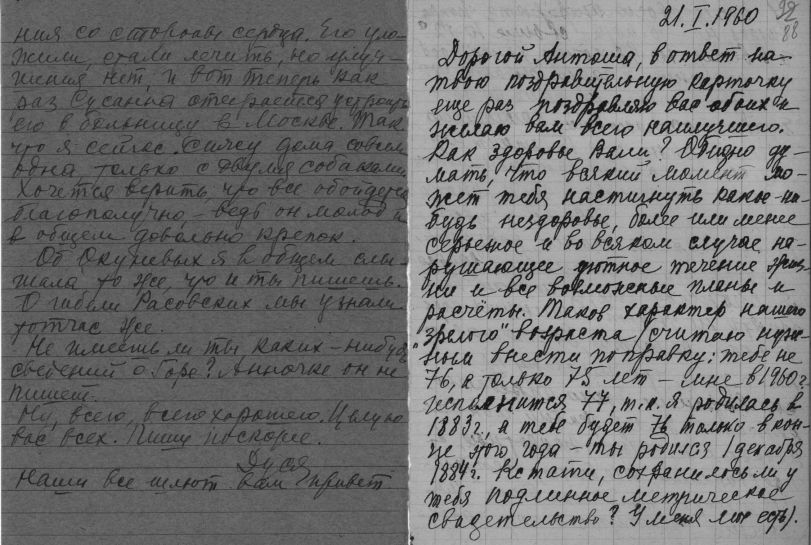 ния со стороны сердца. Его уло-
жили, стали лечить, но улуч-
шения нет, и вот теперь как
раз Сусанна старается устроить
его в больницу в Москве. Так
что я сейчас сижу дома совсем
одна только с двумя собаками
Хочется верить, что все обойдется
благополучно, – ведь он молод и
в общем довольно крепок.
Об Окуневых я в общем слы-
шала то же, что и ты пишешь.
О гибели Расовских мы узнали
тотчас же.
Не имеешь ли ты каких-нибудь
сведений о Боре? Анночке он не
пишет.
Ну, всего, всего хорошего. Целую
вас всех. Пиши поскорее.
Дуся
Наши все шлют Вам привет
21.I.1960
92
88
Дорогой Антоша, в ответ на
твою поздравительную карточку
еще раз поздравляю вас обоих и
желаю вам всего наилучшего.
Как здоровье Вали? Обидно ду-
мать, что всякий момент мо-
жет тебя настигнуть какое-ни-
будь нездоровье, более или менее
серьезное и во всяком случае на-
рушающее уютное течение жиз-
ни и все возможные планы и
расчёты. Таков характер нашего
"зрелого" возраста (считаю нуж-
ным внести поправку: тебе не
76, а только 75 лет – мне в 1960 г.
исполнится 77, т.к. я родилась в
1883 г., а тебе будет 76 только в кон-
це этого года – ты родился 1 декабря
1884 г. Кстати, сохранилось ли у
тебя подлинное метрическое
свидетельство? У меня мое есть).